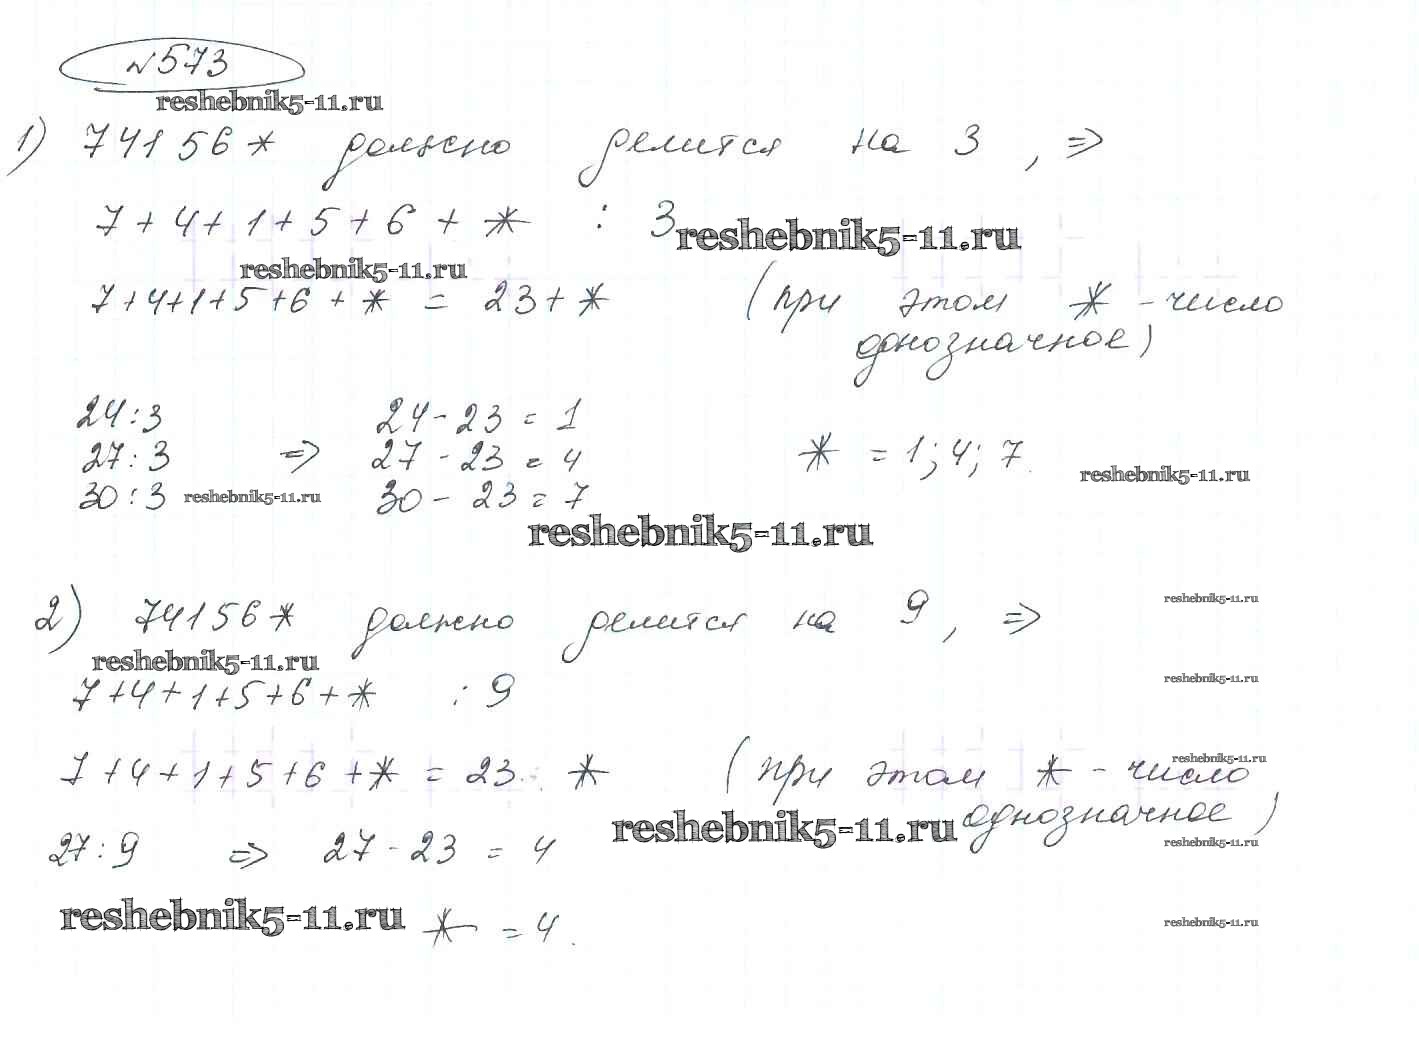 №573
reshebnik5-11.ru
1) 74156* должно делится на 3, =>
7+4+1+5+6+* : 3
reshebnik5-11.ru
reshebnik5-11.ru
7+4+1+5+6+* = 23+* (при этом * - число
однозначное)
24:3 24-23=1
27:3 => 27-23=4 * = 1; 4; 7.
reshebnik5-11.ru
30:3 reshebnik5-11.ru 30-23=7
reshebnik5-11.ru
reshebnik5-11.ru
2) 74156* должно делится на 9, =>
reshebnik5-11.ru
reshebnik5-11.ru
7+4+1+5+6+* : 9
reshebnik5-11.ru
7+4+1+5+6+* = 23 * (при этом * - число
reshebnik5-11.ru однозначное)
27:9 => 27-23=4
reshebnik5-11.ru
reshebnik5-11.ru * = 4.
reshebnik5-11.ru